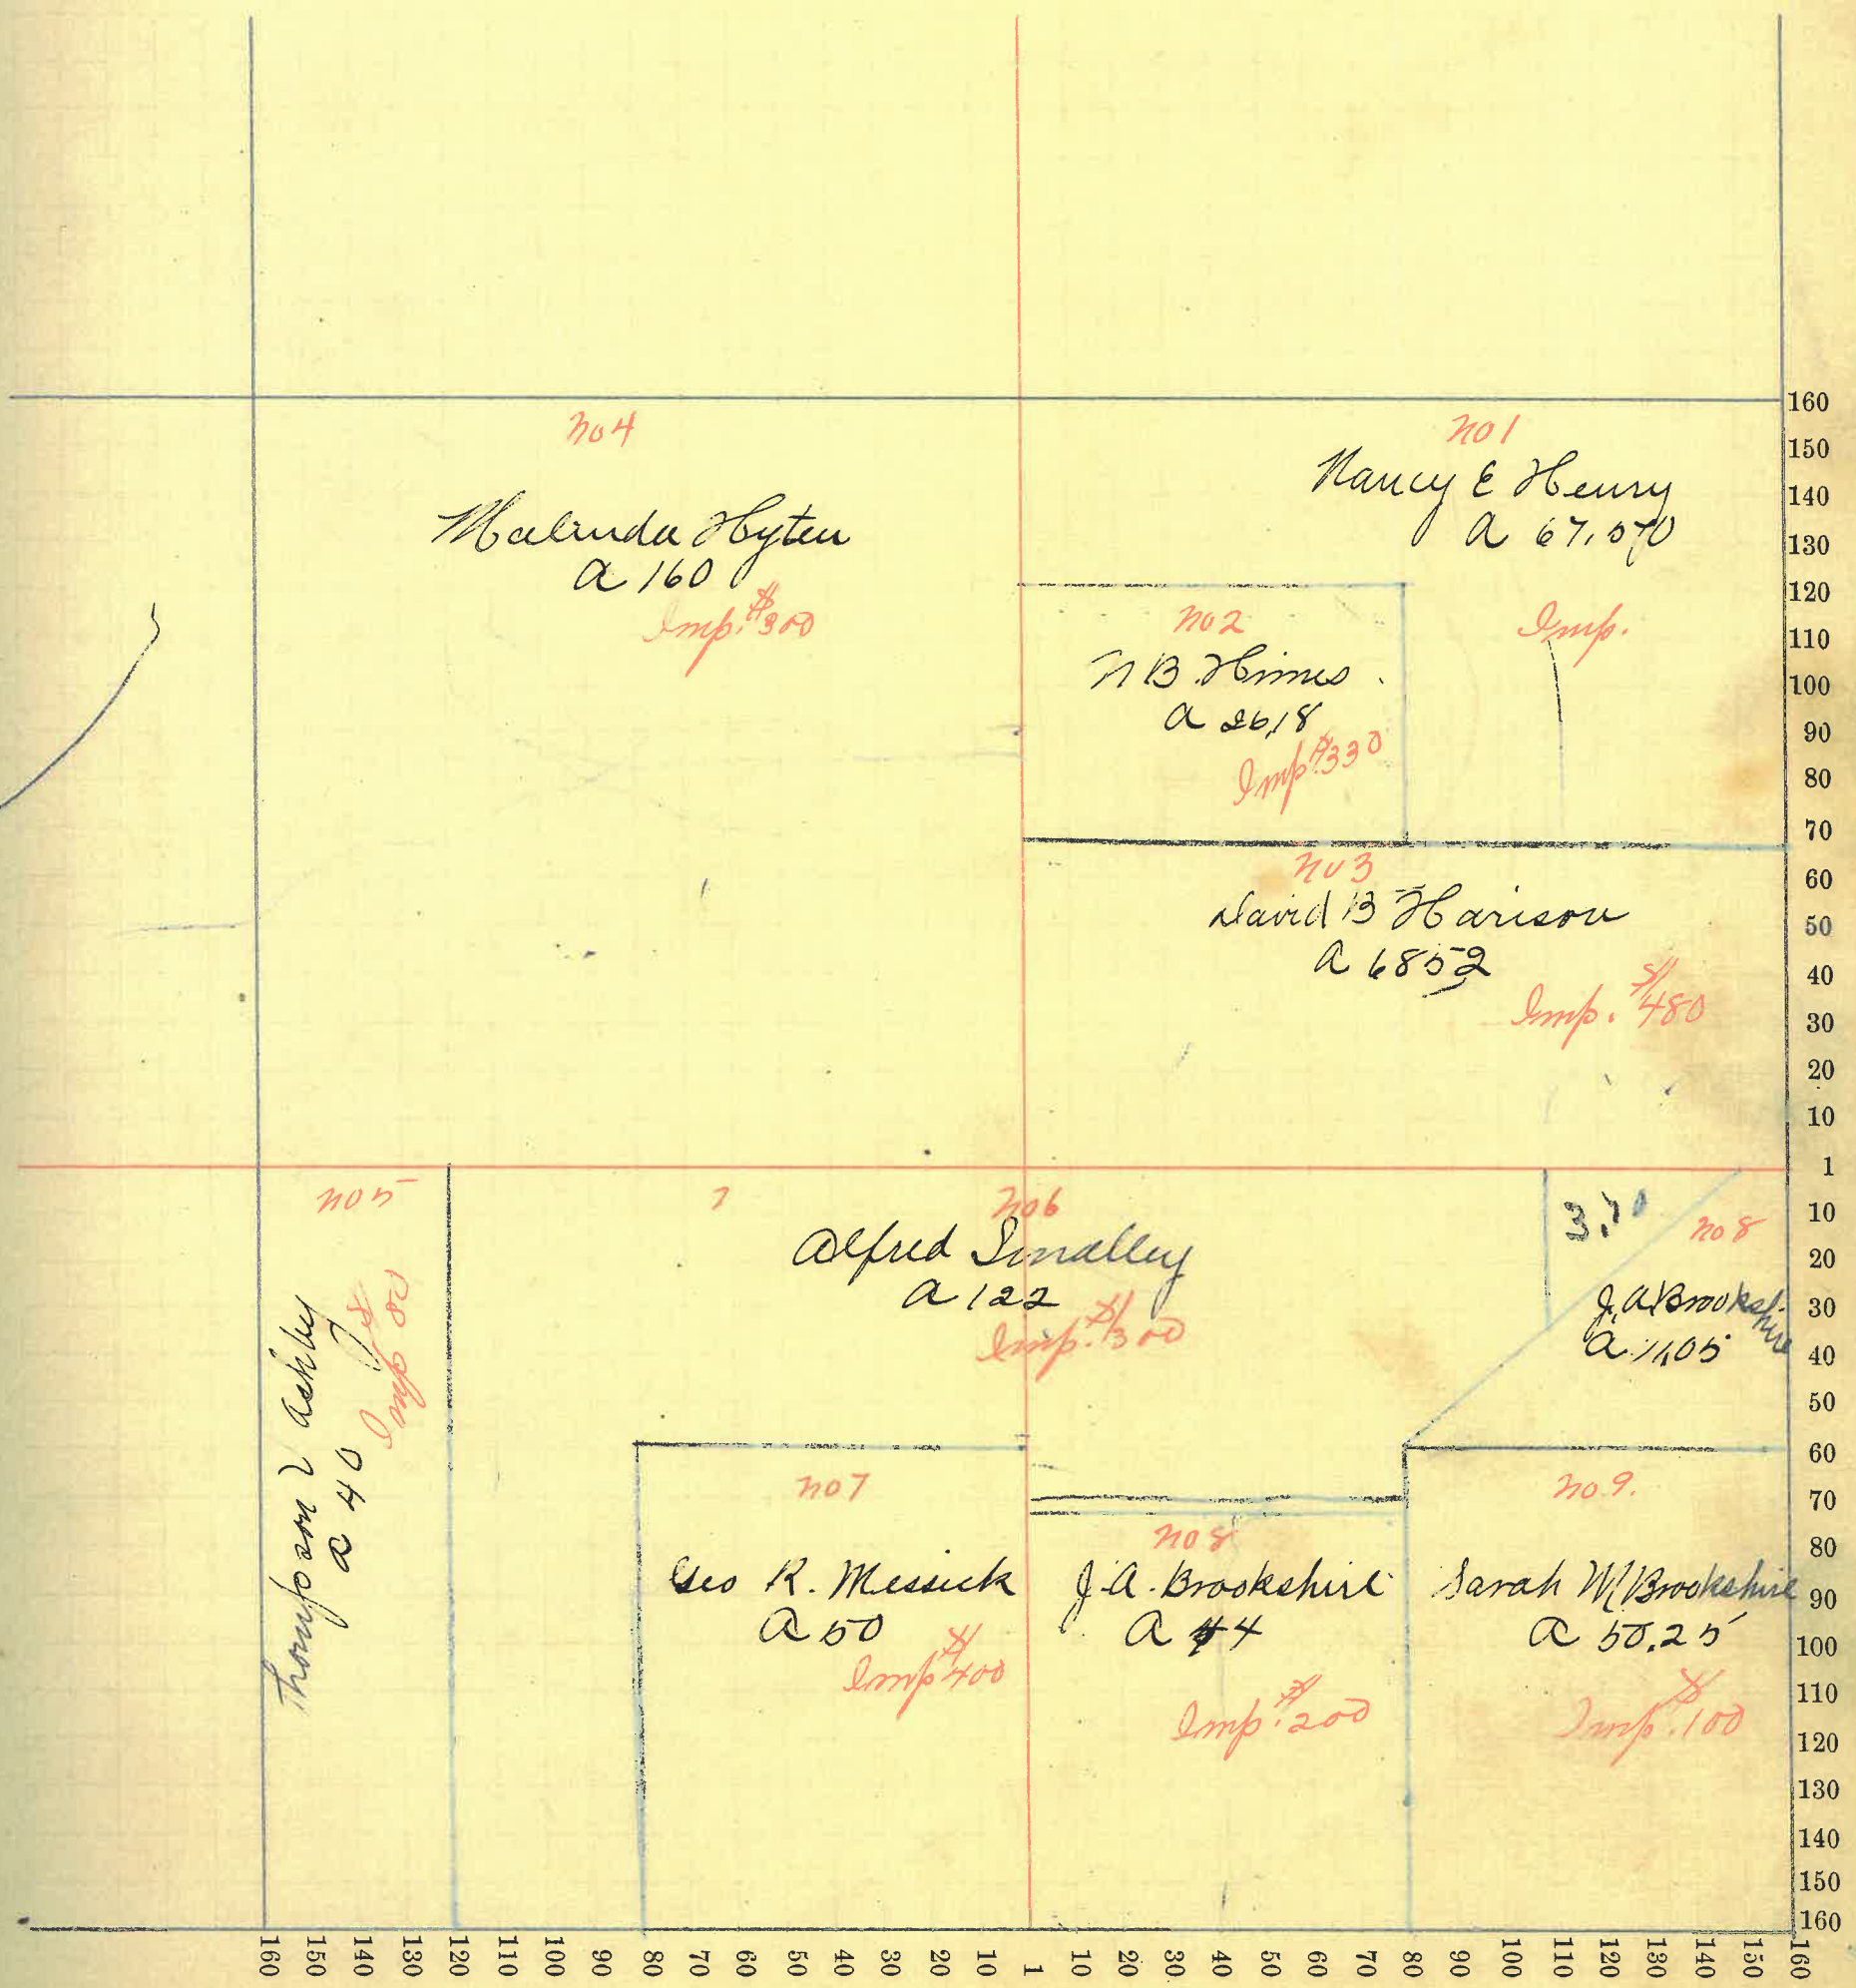 No 4
Malinda Hyten
A 160
Imp. $300
No 1
Nancy E Henry
A 67,
Imp.
No 2
N B Himes
A 26,18
Imp. $330
No 3
David B Harison
A 6852
Imp. $480
No 5
Thompson Ashby
A 40
Imp $ 80
No 6
Alfred Smalley
A 122
Imp. $300
No 8
J. A. Brookshire
A 11,05
No 7
Geo R. Messick
A 50
Imp $400
No 8
J. A. Brookshire
A 44
Imp. $200
No 9.
Sarah M Brookshire
A 50.25
Imp. $100
160
150
140
130
120
110
100
90
80
70
60
50
40
30
20
10
1
10
20
30
40
50
60
70
80
90
100
110
120
130
140
150
160
160 150 140 130 120 110 100 90 80 70 60 50 40 30 20 10 1 10 20 30 40 50 60 70 80 90 100 110 120 130 140 150 160